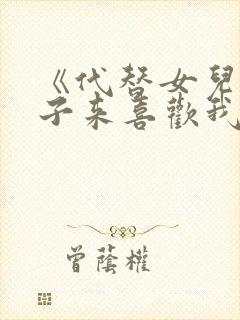 《代替女兒
子来喜歡我
曾蔭權